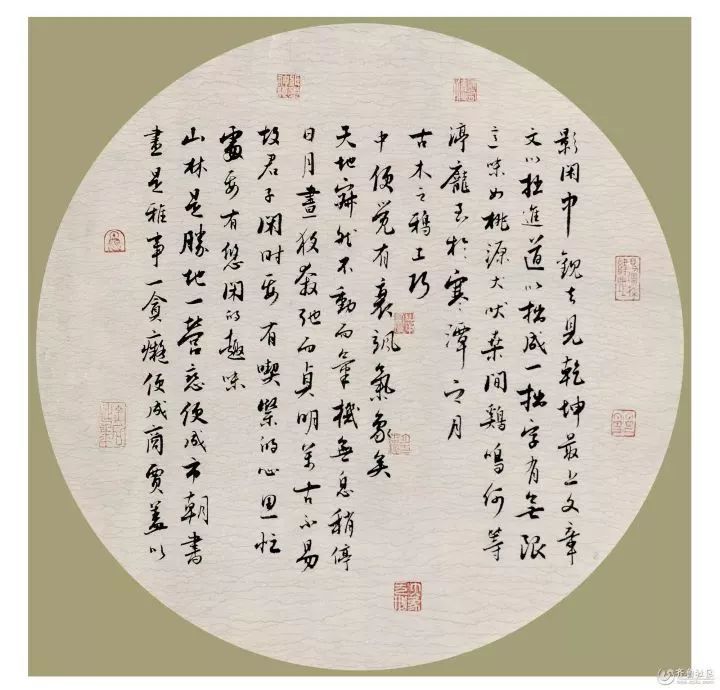 影闲中觀去見乾坤最上文章
文以拙進道以拙成一拙字有無限
意味如桃源犬吠桑間鷄鳴何等
淳龐至於寒潭之月
古木之鴉工巧
中便觉有衰飒氣象矣
天地寂然不動而氣機無息稍停
日月晝夜奔弛而貞明萬古不易
故君子闲时要有喫緊的心思忙
處要有悠闲的趣味
山林是勝地一營恋便成市朝書
畫是雅事一貪癡便成商賈蓋以
齐鲁社区